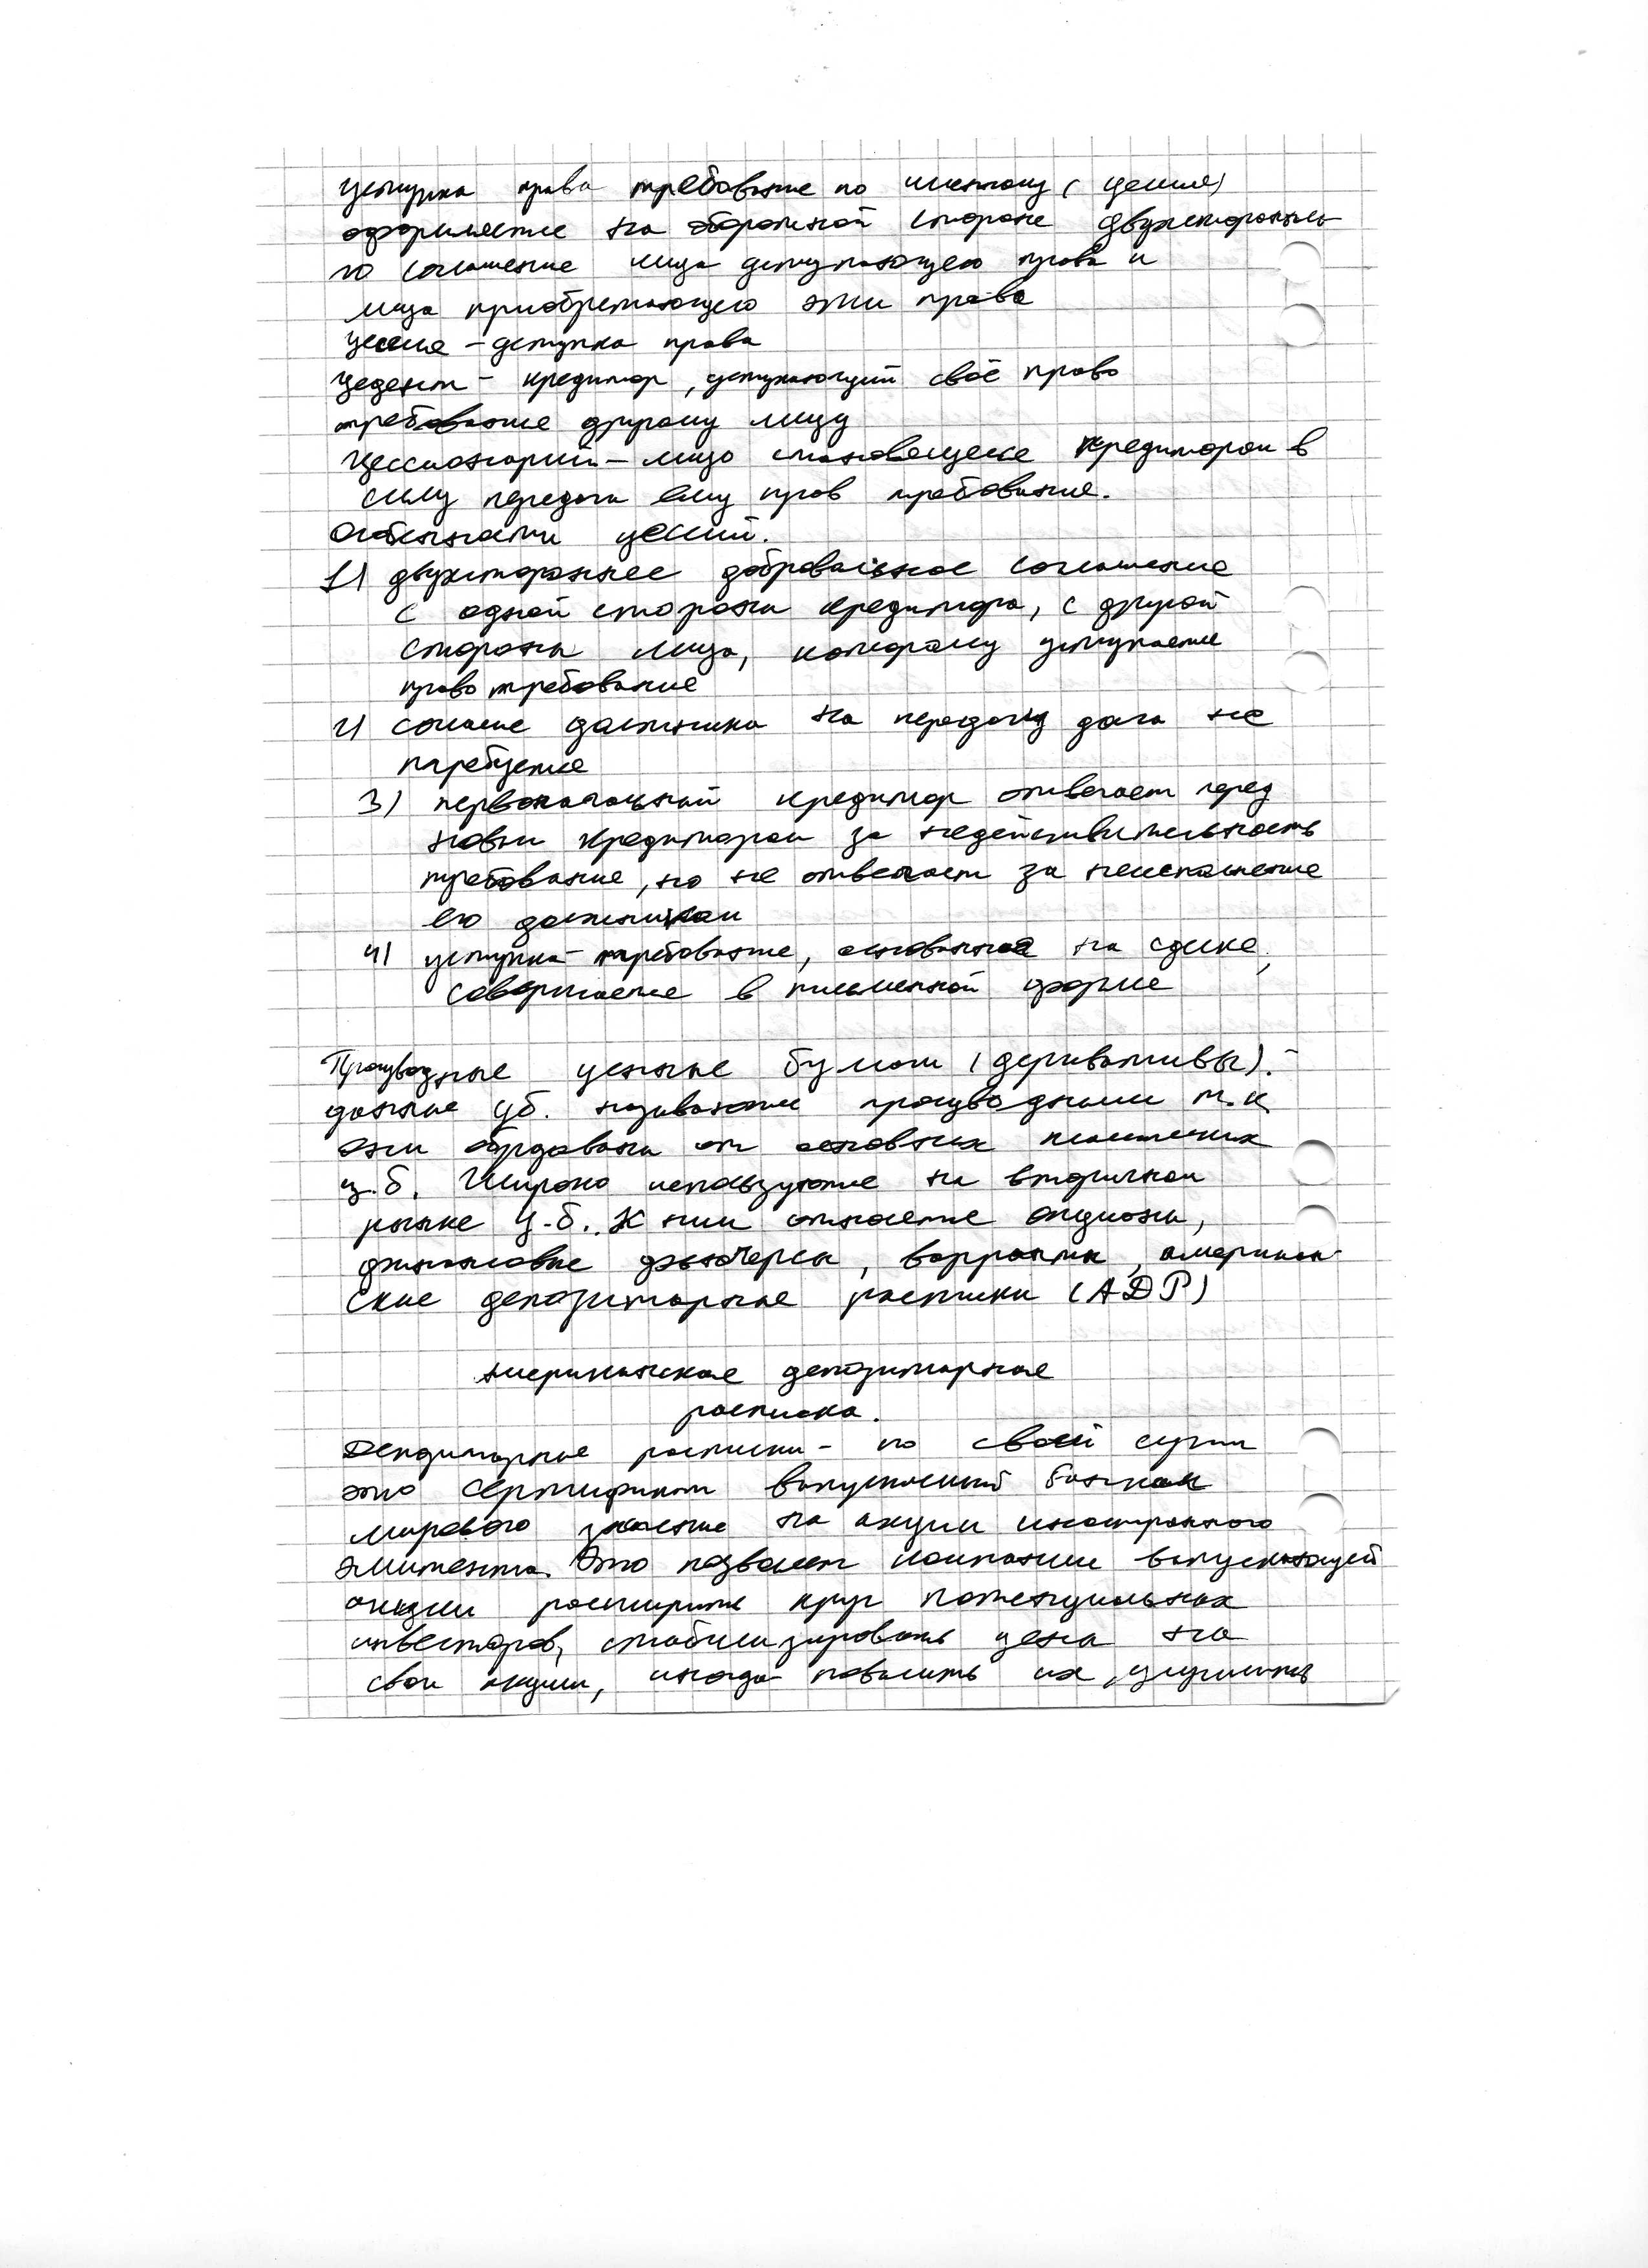 уступка права требование по именному (цессия)
оформляется на оборотной стороне двухсторонны
го соглашение лица уступающего права и
лица приобретающего эти права
цессия - уступка права
Цедент - кредитор, уступающий своё право
требование другому лицу
Цессионарий - лицо становещееся кредитором в
силу передачи ему прав требование.
Особенности цессии.
1) двухстороннее добровольное соглашение
с одной стороны кредитора, с другой
стороны лица, которому уступается
право требование
2) согласие должника на передачу долга не
требуется
3) первоначальный кредитор отвечает перед
новым кредитором за недействительность
требование, но не отвечает за неисполнение
его должником
4) уступка требование, основанное на сделке,
совершается в письменной форме
Производные ценные бумаги (деривативы).-
данные цб. называются производными т.к
они образованы от основных классических
ц.б. Широко используются на вторичном
рынке ц.б. К ним относятся опционы,
финансовые фьючерсы, варранты, американ-
ские депозитарные расписки (АДР)
Американская депозитарная
расписка.
Депозитарные расписки - по своей сути
это сертификат выпускаемый банком
мирового значение на акции иностранного
эмитента. Это позволяет компании выпускающей
акции расширить круг потенциальных
инвесторов, стабилизировать цены на
свои акции, иногда повысить их, улучшить